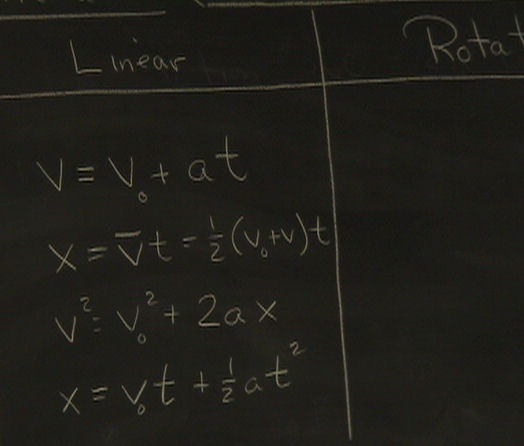 Linear
Rotat
V = V₀ + at
x = v̅t = ½(v₀+v)t
v² = v₀² + 2ax
x = v₀t + ½at²